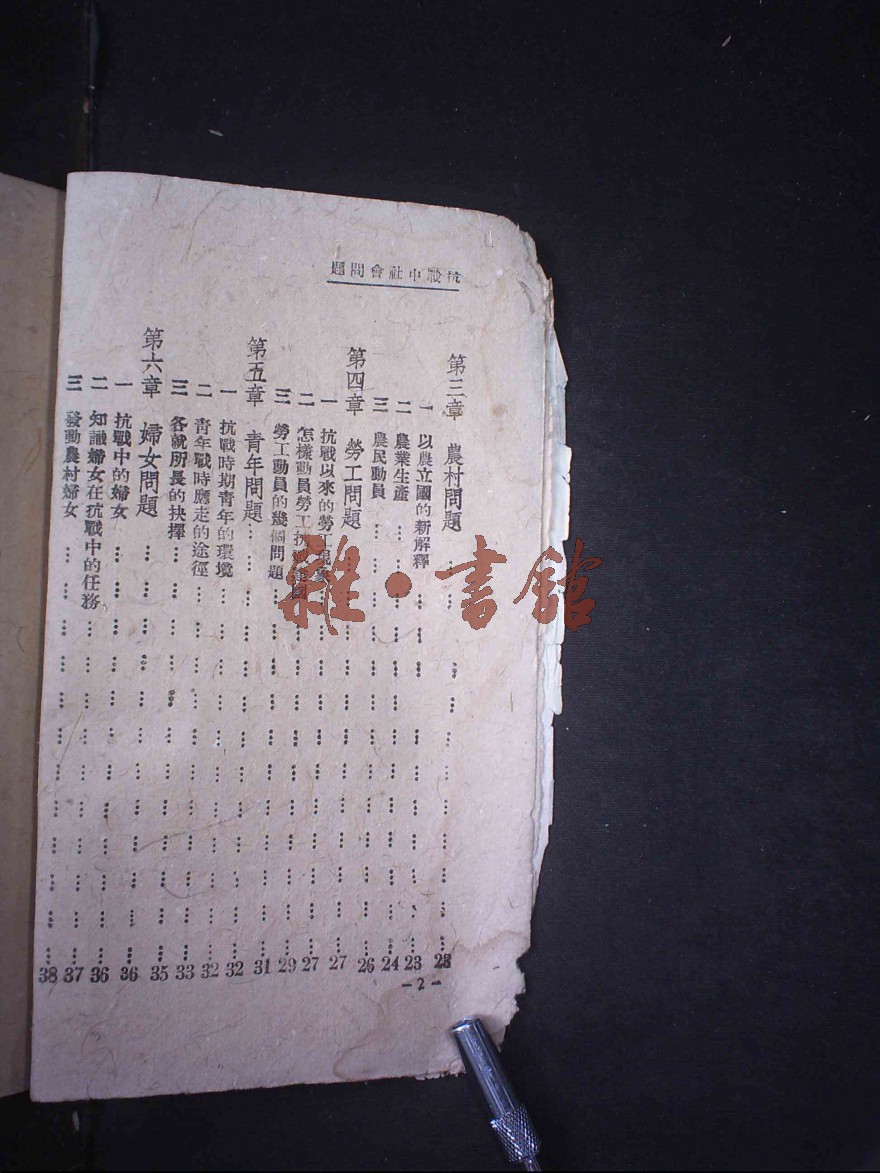 抗戰中社會問題
第三章 農村問題 ……………… 23
一 以農立國的新解釋 ……………… 23
二 農業生產 ……………… 24
三 農民動員 ……………… 26
第四章 勞工問題 ……………… 27
一 抗戰以來的勞工現象 ……………… 27
二 怎樣動員勞工抗戰建國 ……………… 29
三 勞工動員的幾個問題 ……………… 31
第五章 青年問題 ……………… 32
一 抗戰時期青年的環境 ……………… 32
二 青年戰時應走的途徑 ……………… 33
三 各就所長的抉擇 ……………… 35
第六章 婦女問題 ……………… 36
一 抗戰中的婦女 ……………… 36
二 知識婦女在抗戰中的任務 ……………… 37
三 發動農村婦女 ……………… 38
－2－
雜·書館